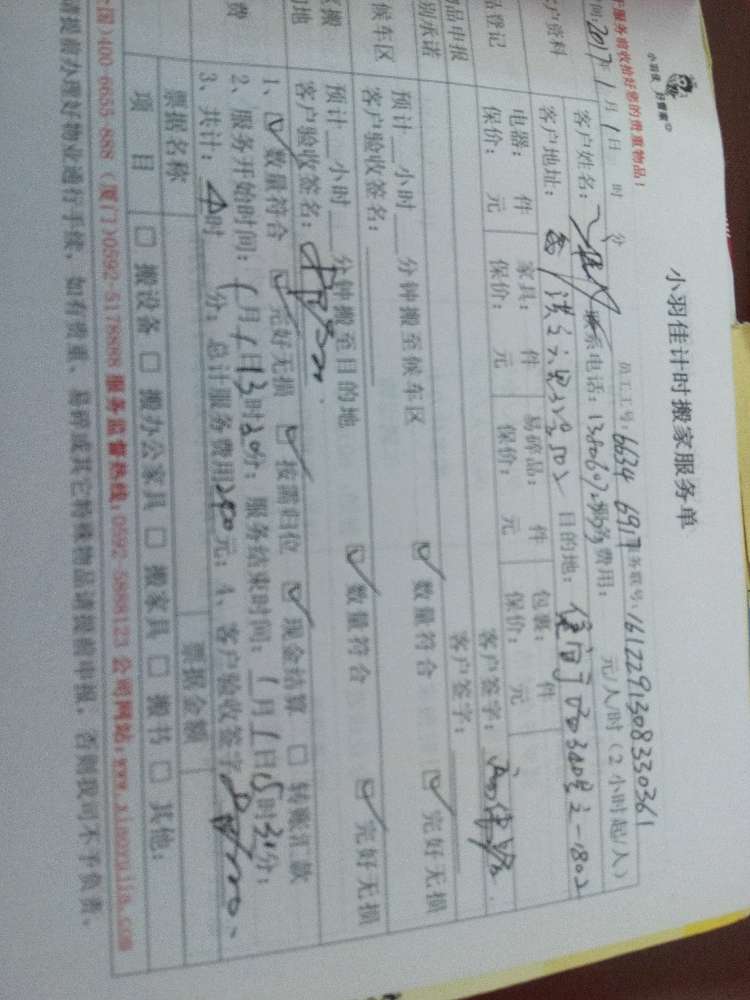 小羽佳 好管家
小羽佳计时搬家服务单
服务前收拾好您的贵重物品!
员工工号: 6634 6917 务联号: 161229130833036 1
间: 2017年 1月 1日 时 分
元/人/时 (2小时起/人)
户资料
客户姓名: 联系电话: 费用:
客户地址: 目的地:
品登记
电器: 件 家具: 件 易碎品: 件 包裹: 件
保价: 元 保价: 元 保价: 元 保价: 元
品申报
别承诺
客户签字:
客户签字:
候车区
预计 小时 分钟搬至候车区 ☑ 数量符合 ☑ 完好无损
客户验收签名:
区搬
的地
预计 小时 分钟搬至目的地 ☑ 数量符合 ☑ 完好无损
客户验收签名:
费
1、☑ 数量符合 ☑ 完好无损 ☑ 按需归位 ☑ 现金结算 □ 转账汇款
2、服务开始时间: 1月1日13时20分; 服务结束时间: 1月1日15时31分;
3、共计: 时 分; 总计服务费用280元; 4、客户验收签字
票据名称 票据金额
项 目 □ 搬设备 □ 搬办公家具 □ 搬家具 □ 搬书 □ 其他:
国)400-6655-888 (厦门)0592-5178888 服务监督热线:0592-5888123 公司网站:www.xiaoyujia.com
请提前办理好物业通行手续,如有贵重、易碎或其它特殊物品请提前申报,否则我司不予负责。